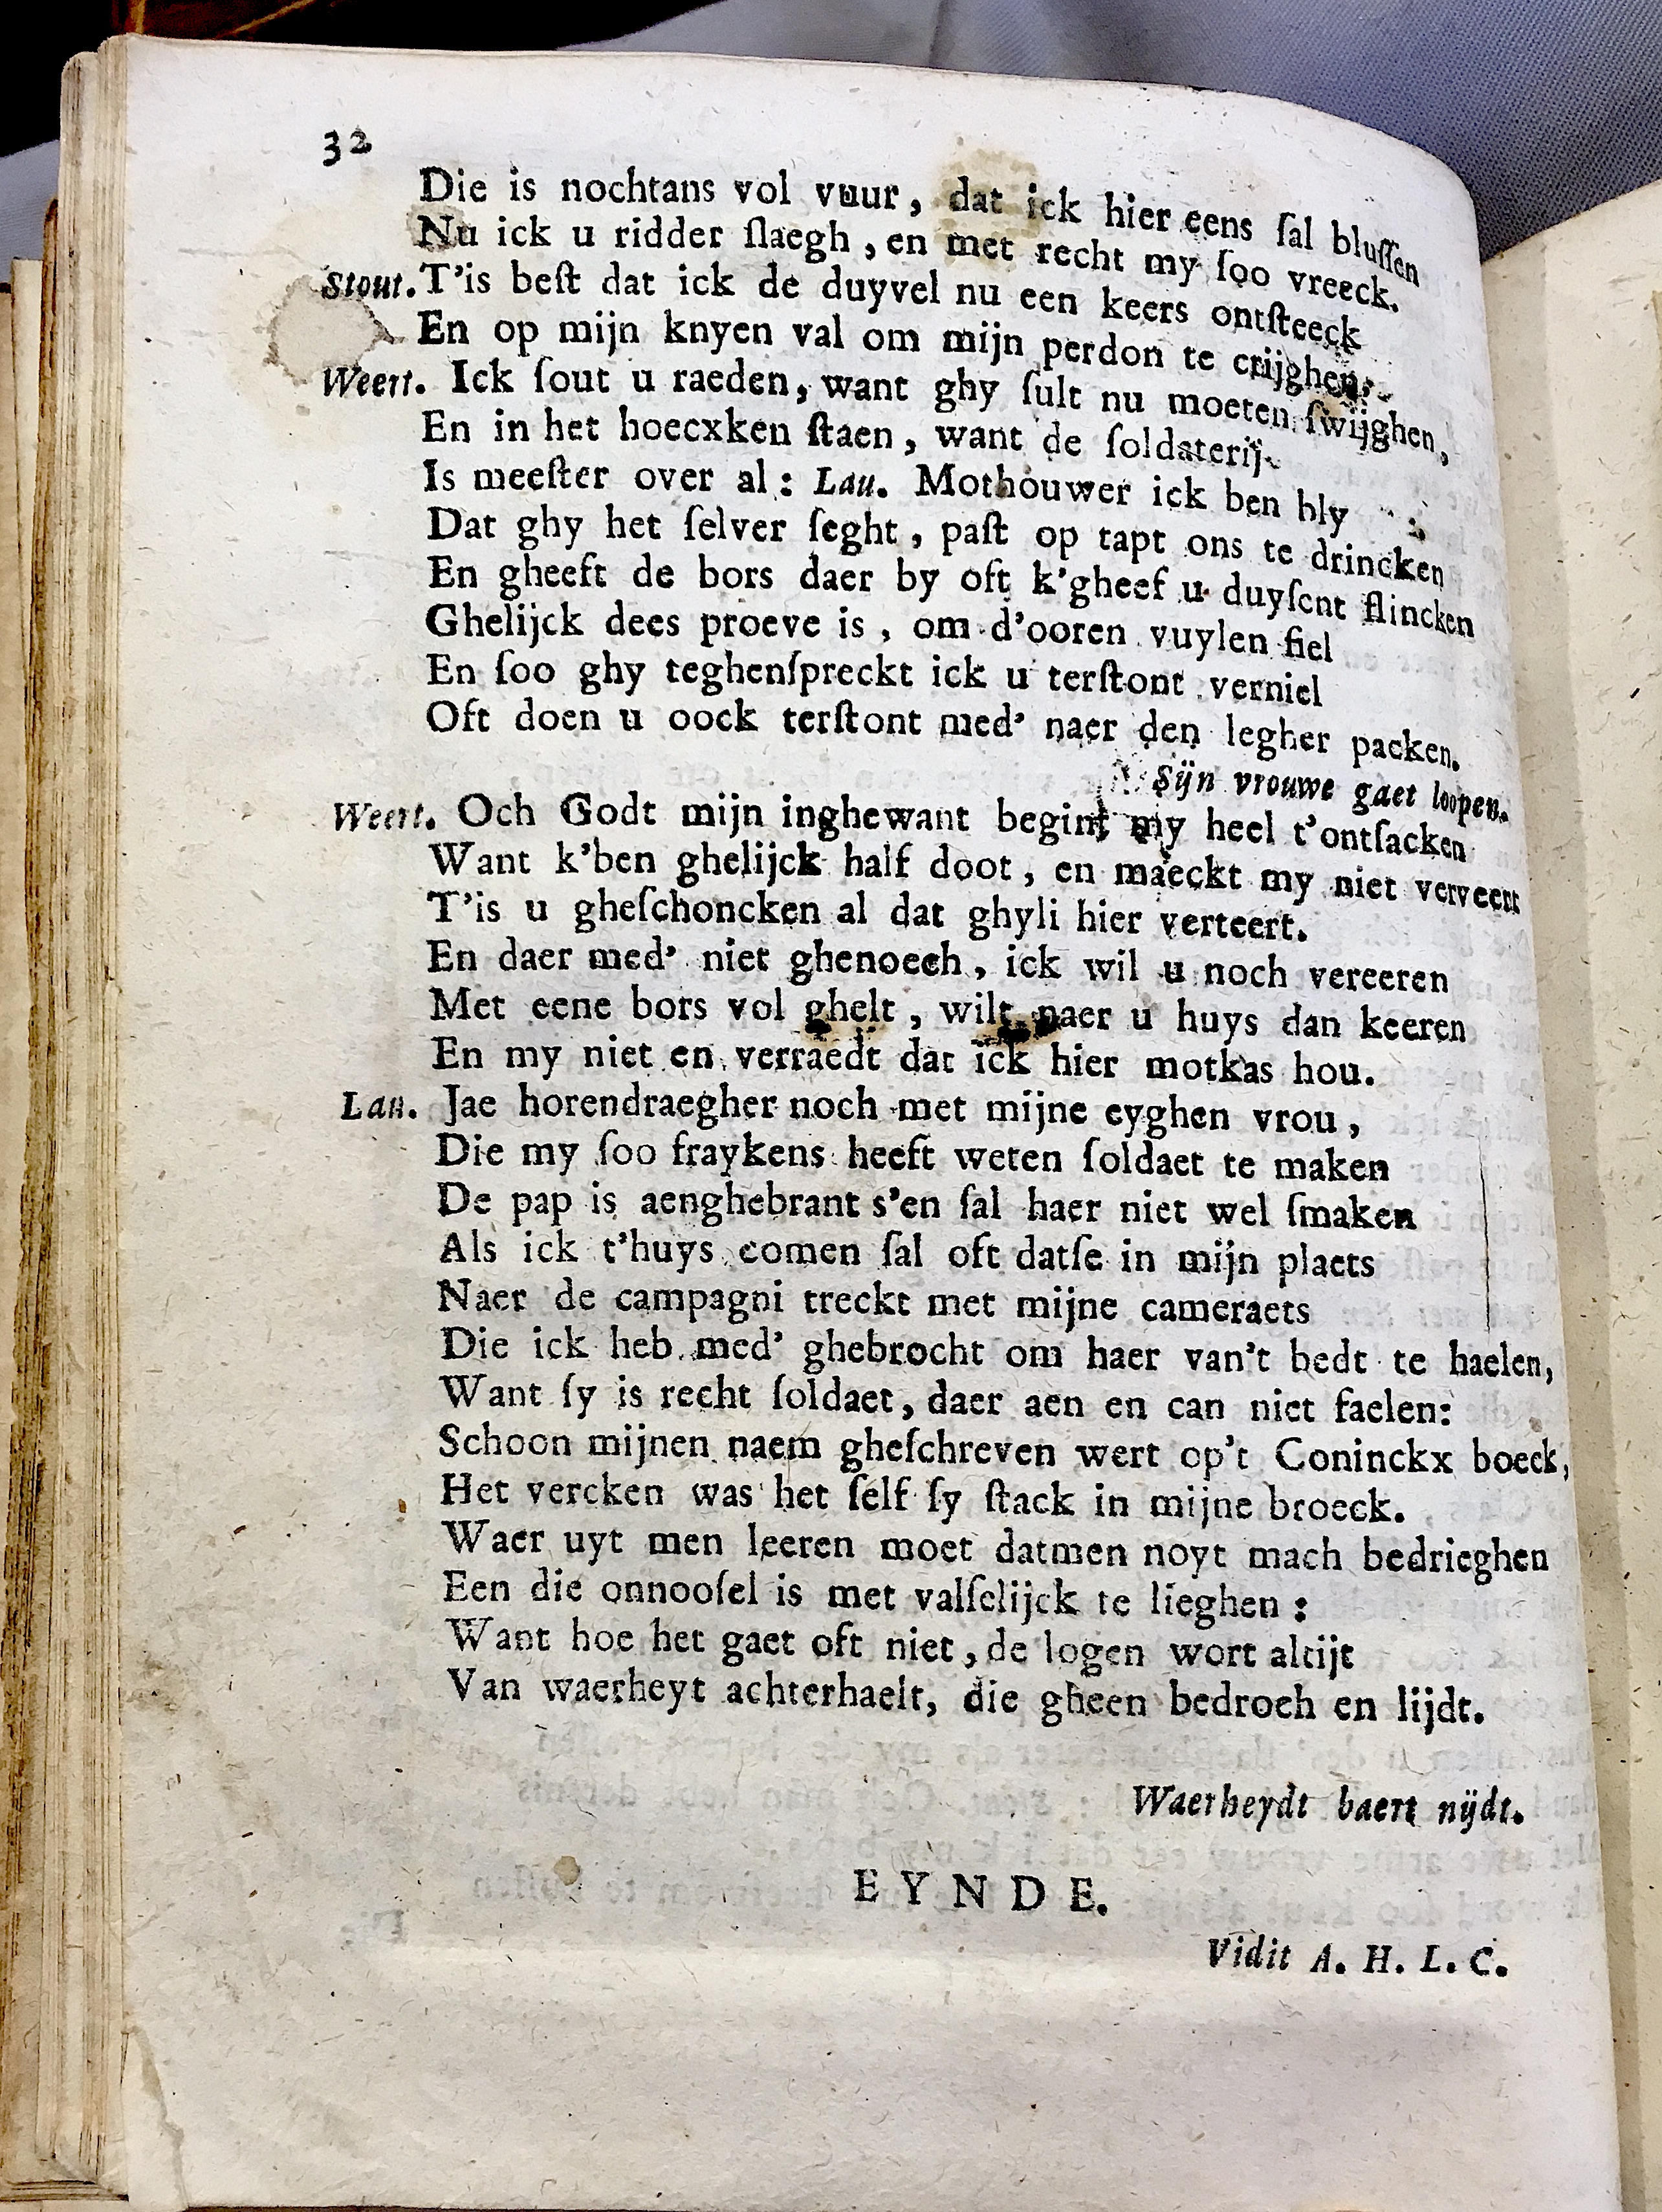 32
Die is nochtans vol vuur, dat ick hier eens ſal bluſſen
Nu ick u ridder ſlaegh, en met recht my ſoo vreeck.
Stout. T'is beſt dat ick de duyvel nu een keers ontſteeck
En op mijn knyen val om mijn perdon te crijghen.
Weert. Ick ſout u raeden, want ghy ſult nu moeten ſwijghen,
En in het hoecxken ſtaen, want de ſoldaterij
Is meeſter over al: Lau. Mothouwer ick ben bly
Dat ghy het ſelver ſeght, paſt op tapt ons te drincken
En gheeft de bors daer by oft k'gheef u duyſent flincken
Ghelijck dees proeve is, om d'ooren vuylen fiel
En ſoo ghy teghenſpreckt ick u terſtont verniel
Oft doen u oock terſtont med' naer den legher packen.
Sijn vrouwe gaet loopen.
Weert. Och Godt mijn inghewant begint my heel t'ontſacken
Want k'ben ghelijck half doot, en maeckt my niet verveert
T'is u gheſchoncken al dat ghyli hier verteert.
En daer med' niet ghenoech, ick wil u noch vereeren
Met eene bors vol ghelt, wilt naer u huys dan keeren
En my niet en verraedt dat ick hier motkas hou.
Lau. Jae horendraegher noch met mijne eyghen vrou,
Die my ſoo fraykens heeft weten ſoldaet te maken
De pap is aenghebrant s'en ſal haer niet wel ſmaken
Als ick t'huys comen ſal oft datſe in mijn plaets
Naer de campagni treckt met mijne cameraets
Die ick heb med' ghebrocht om haer van't bedt te haelen,
Want ſy is recht ſoldaet, daer aen en can niet faelen:
Schoon mijnen naem gheſchreven wert op't Coninckx boeck,
Het vercken was het ſelf ſy ſtack in mijne broeck.
Waer uyt men leeren moet datmen noyt mach bedrieghen
Een die onnooſel is met valſelijck te lieghen:
Want hoe het gaet oft niet, de logen wort altijt
Van waerheyt achterhaelt, die gheen bedroch en lijdt.
Waerheydt baert nijdt.
EYNDE.
Vidit A. H. L. C.